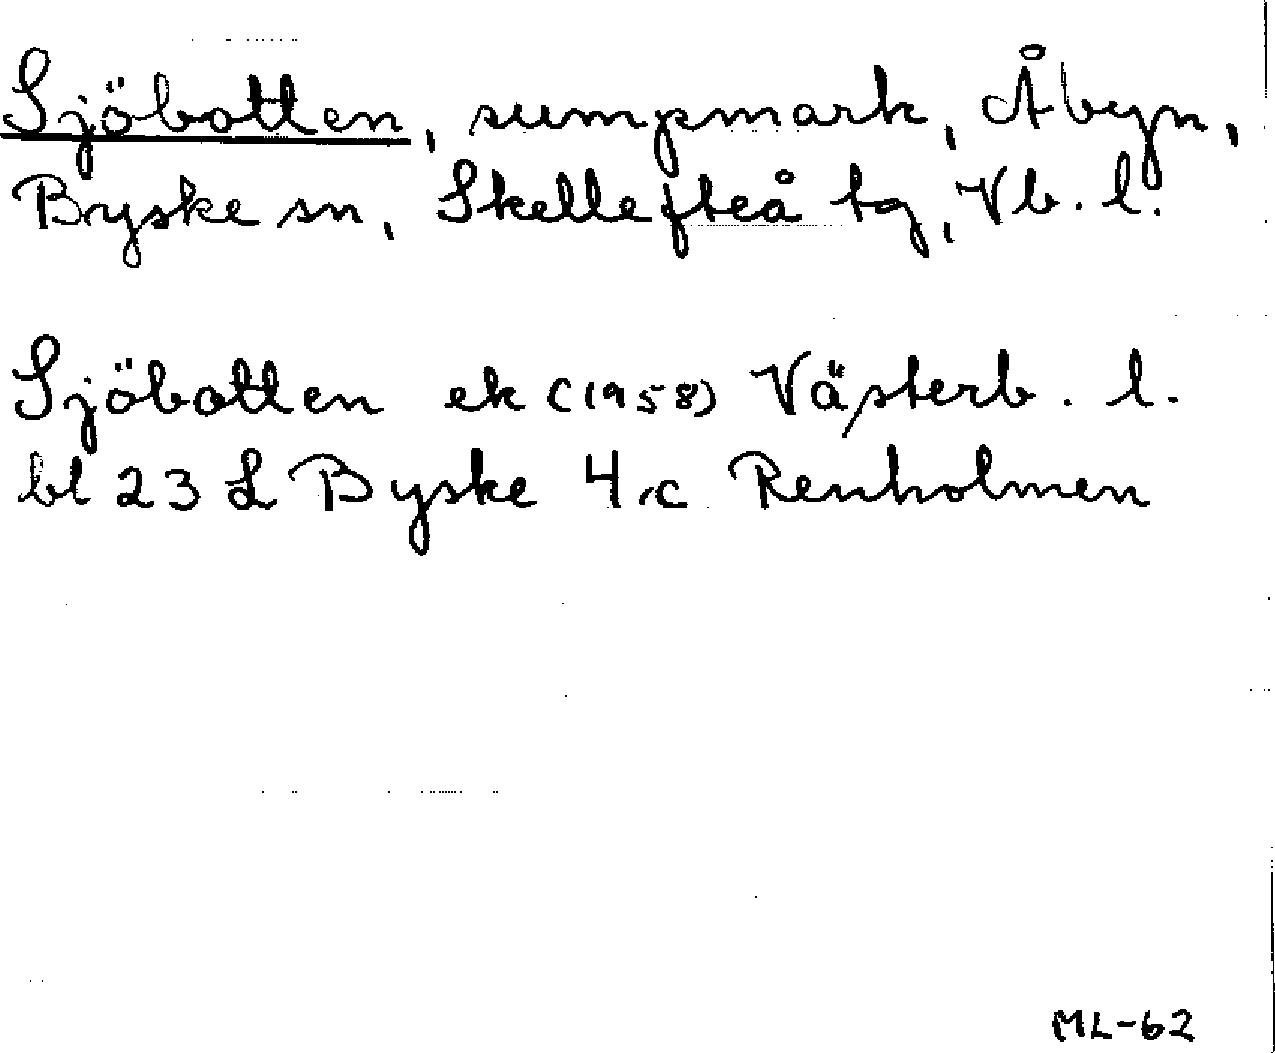 Sjöbotten, sumpmark, Åbyn,
Byske sn, Skellefteå tg, Vb. l.
Sjöbotten ek (1958) Västerb. l.
bl 23 L Byske 4 c Renholmen
ML-62